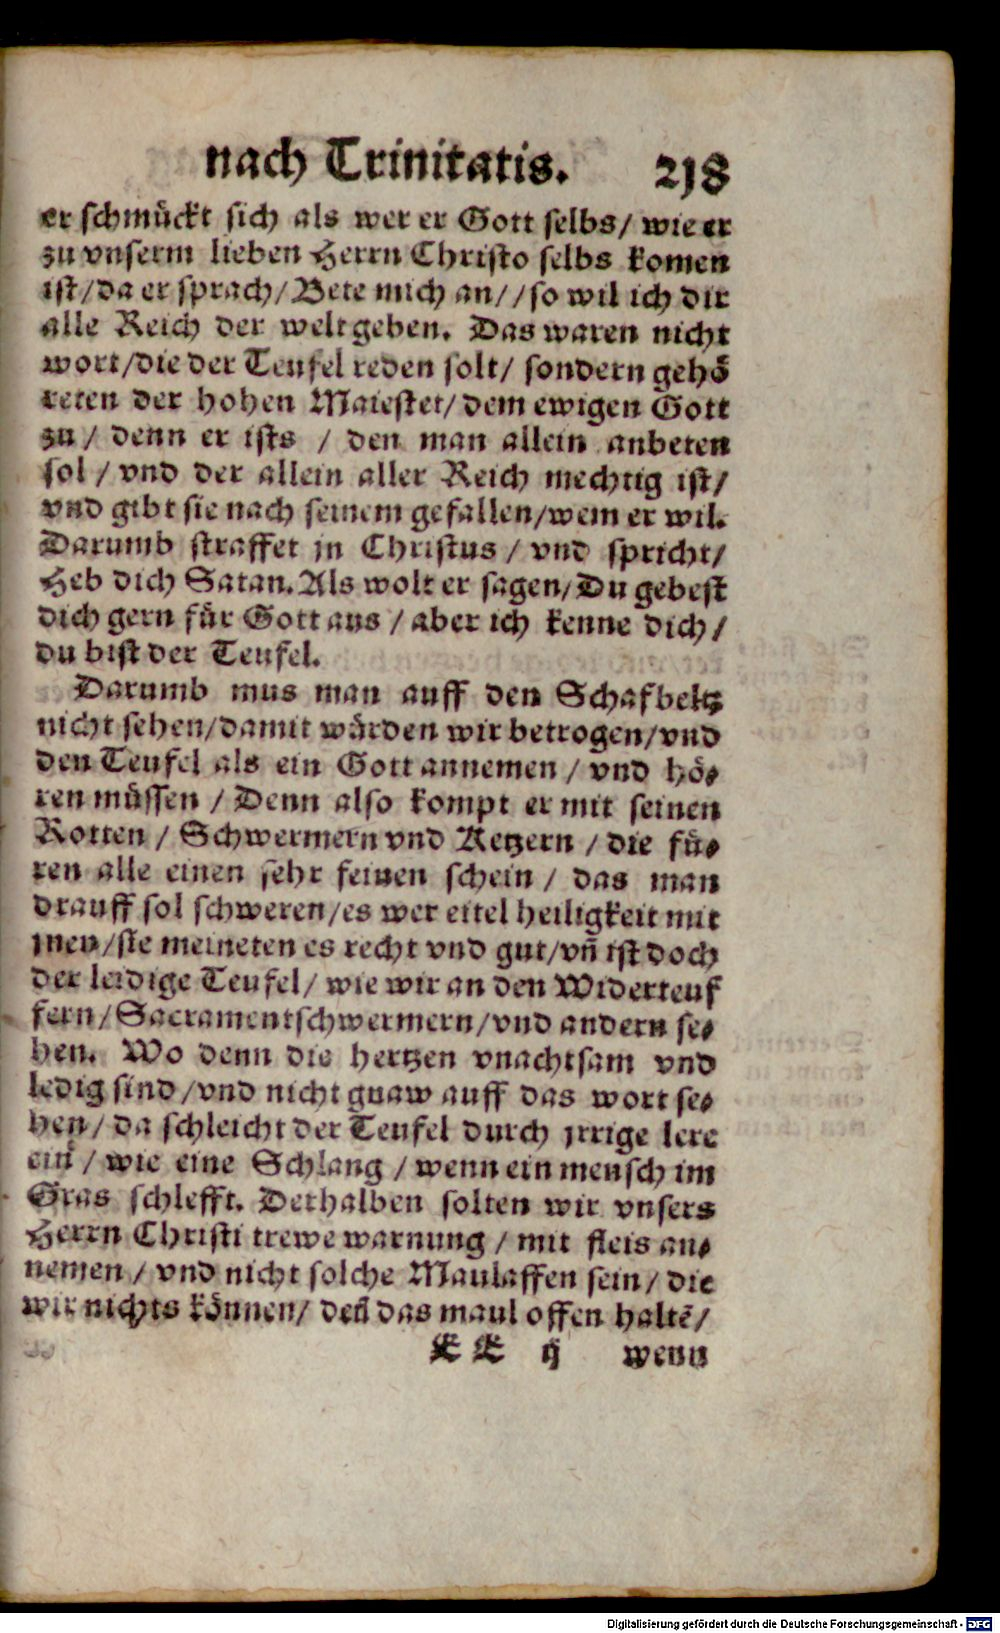 nach Trinitatis. 218
er schmuͤckt sich als wer er Gott selbs/ wie er
zu vnserm lieben Herrn Christo selbs komen
ist/da er sprach/Bete mich an//so wil ich dir
alle Reich der welt geben. Das waren nicht
wort/die der Teufel reden solt/ sondern gehoͤ
reten der hohen Maiestet/dem ewigen Gott
zu/ denn er ists / den man allein anbeten
sol/ vnd der allein aller Reich mechtig ist/
vnd gibt sie nach seinem gefallen/wem er wil.
Darumb straffet jn Christus / vnd spricht/
Heb dich Satan. Als wolt er sagen/Du gebest
dich gern fuͤr Gott aus / aber ich kenne dich/
du bist der Teufel.
Darumb mus man auff den Schafbeltz
nicht sehen/damit wuͤrden wir betrogen/vnd
den Teufel als ein Gott annemen / vnd hoͤ⸗
ren muͤssen / Denn also kompt er mit seinen
Rotten / Schwermern vnd Ketzern / die fuͤ⸗
ren alle einen sehr feinen schein / das man
drauff sol schweren/es wer eitel heiligkeit mit
jnen/sie meineten es recht vnd gut/vñ ist doch
der leidige Teufel/ wie wir an den Widerteuf
fern/Sacramentschwermern/vnd andern se⸗
hen. Wo denn die hertzen vnachtsam vnd
ledig sind/vnd nicht gnaw auff das wort se⸗
hen/ da schleicht der Teufel durch jrrige lere
ein / wie eine Schlang / wenn ein mensch im
Gras schlefft. Derhalben solten wir vnsers
Herrn Christi trewe warnung / mit fleis an⸗
nemen / vnd nicht solche Maulaffen sein/ die
wir nichts koͤnnen/ deñ das maul offen haltẽ/
EE ij wenn
Digitalisierung gefördert durch die Deutsche Forschungsgemeinschaft - DFG